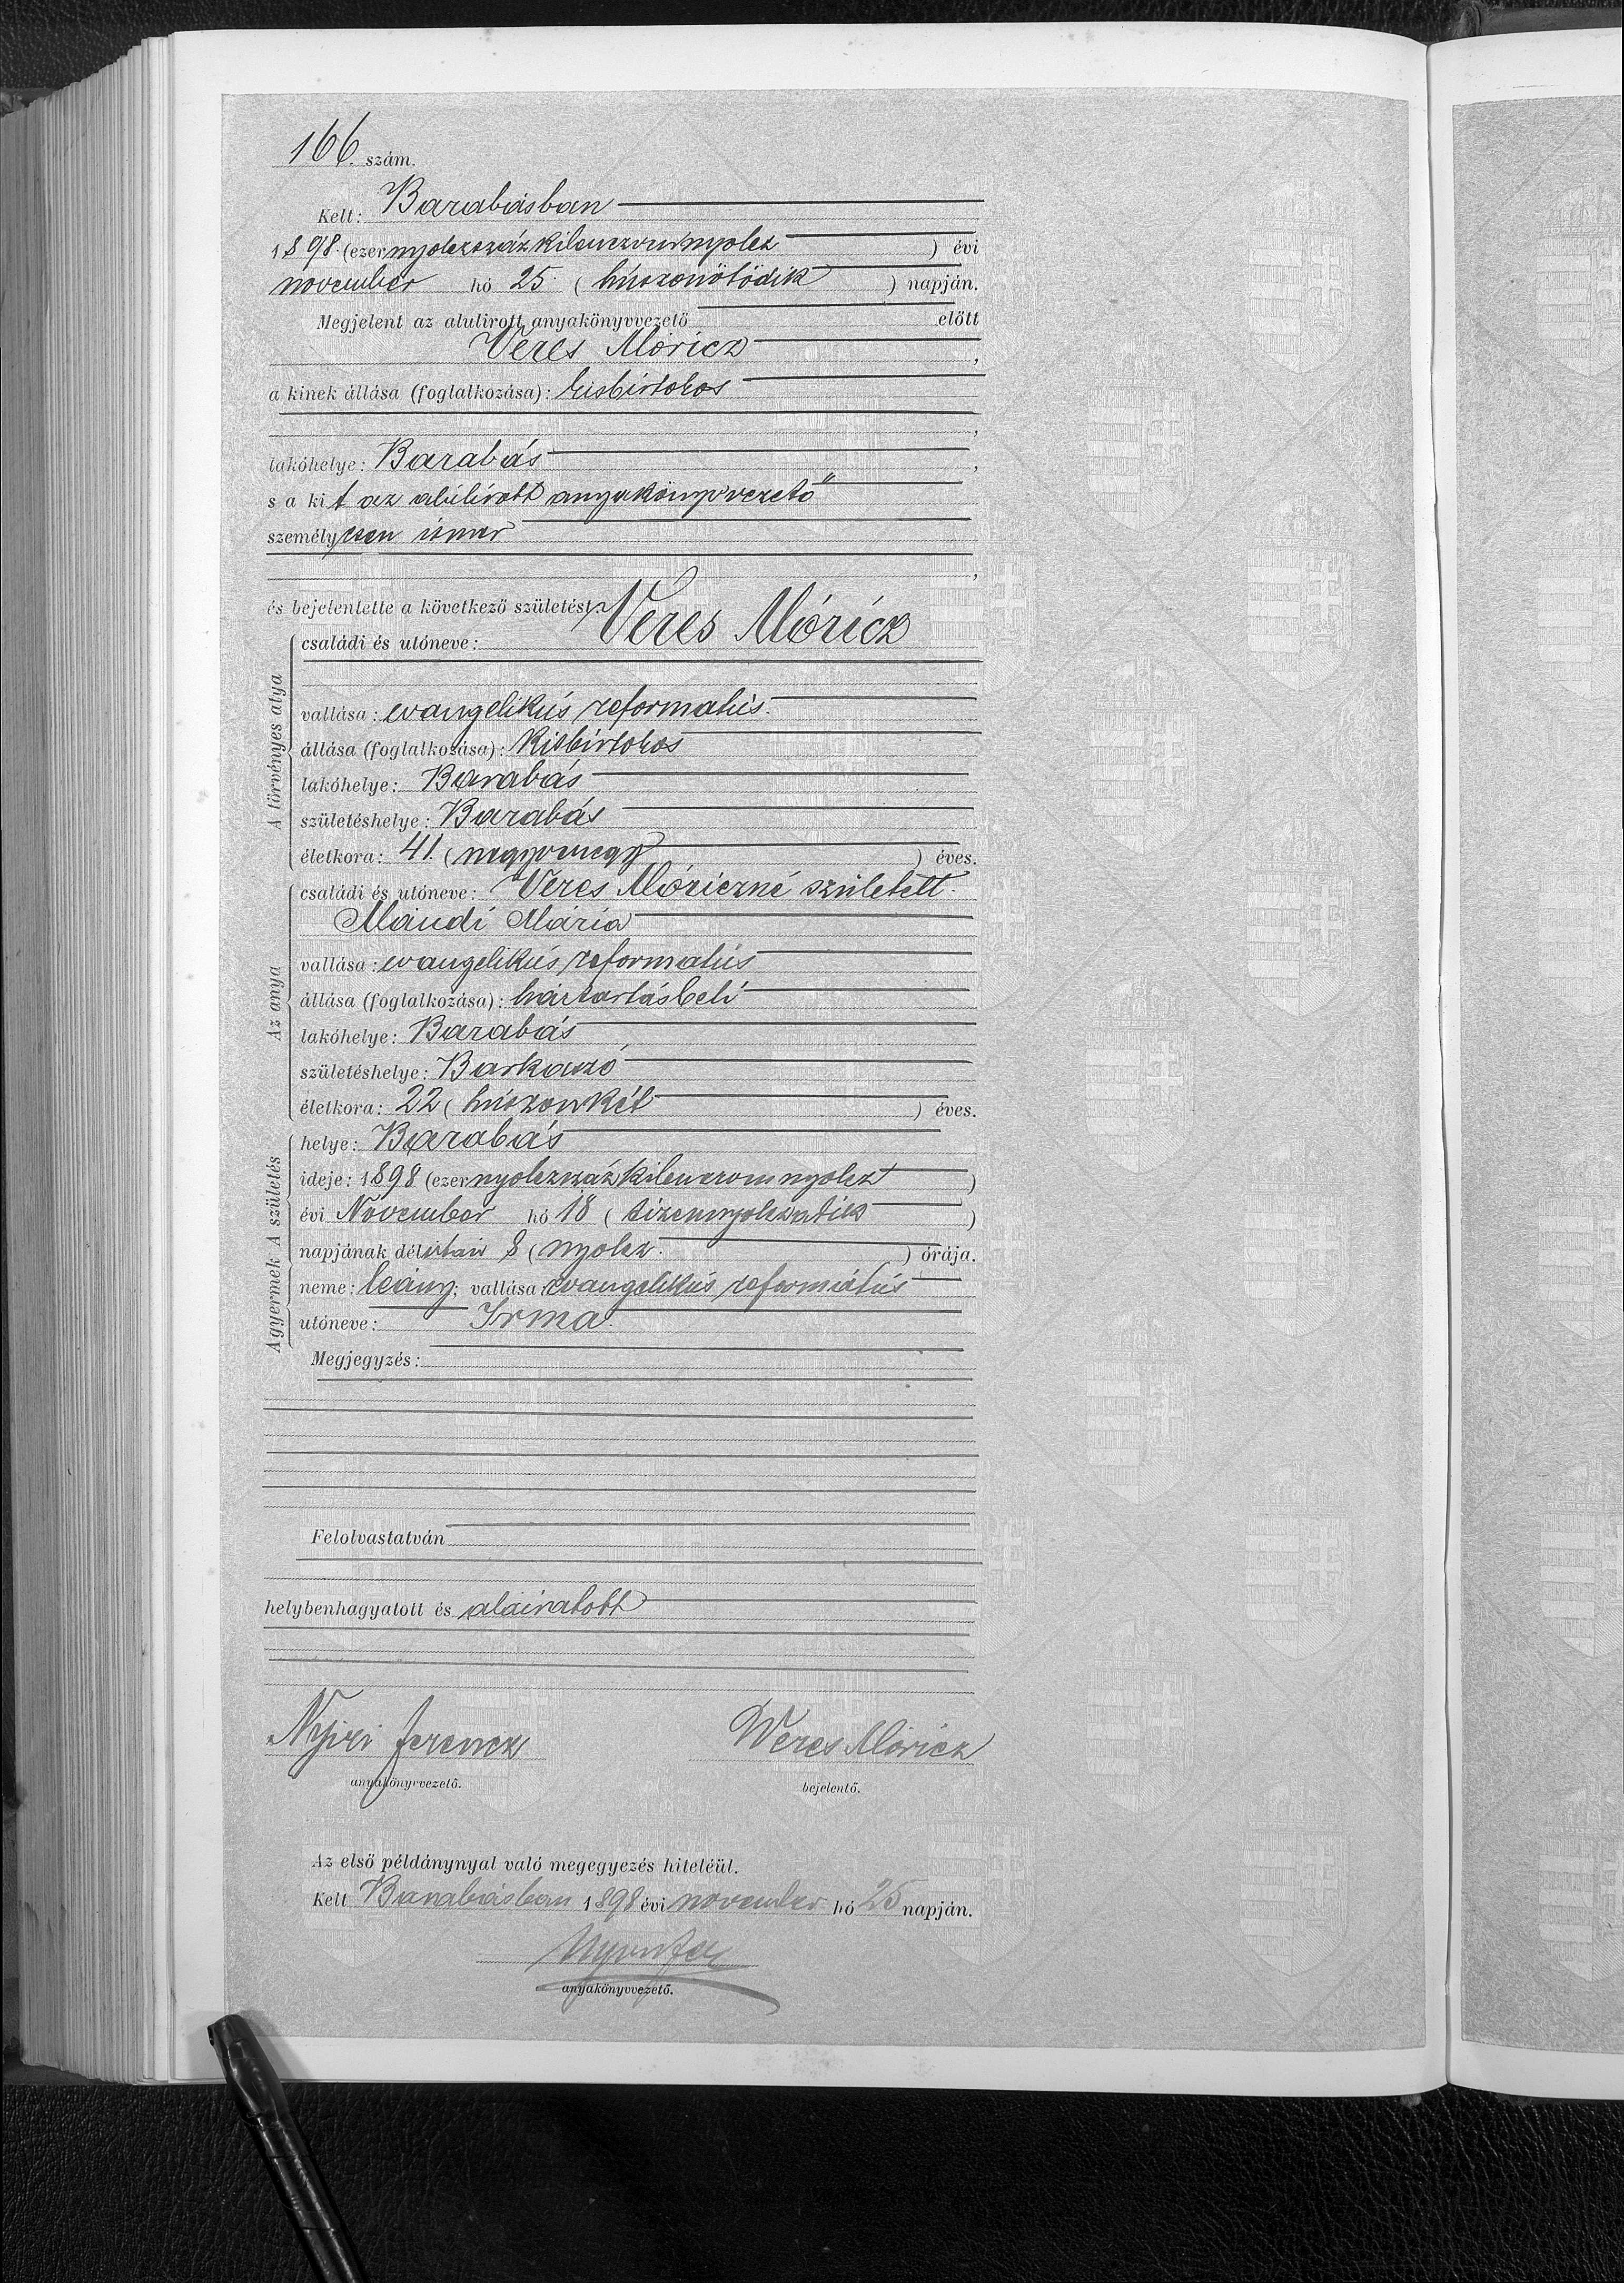 166. szám.
Kelt: Barabásban
1898. (ezernyolczszázkilenczvennyolcz) évi
november hó 25. (húszonötödik) napján.
Megjelent az alulirott anyakönyvvezető előtt
Veres Móricz,
a kinek állása (foglalkozása): kisbirtokos
,
lakóhelye: Barabás,
s a kit az alúlírott anyakönyvvezető
személyesen ismer
,
és bejelentette a következő születést:
A törvényes atya
családi és utóneve: Veres Móricz
vallása: evangelikús reformatús.
állása (foglalkozása): kisbirtokos
lakóhelye: Barabás
születéshelye: Barabás
életkora: 41. (negyvenegy) éves.
Az anya
családi és utóneve: Veres Móriczné született
Mándi Mária
vallása: evangelikús reformatús
állása (foglalkozása): háztartásbeli
lakóhelye: Barabás
születéshelye: Barkaszó
életkora: 22 (húszonkét) éves.
A születés
helye: Barabás
ideje: 1898 (ezernyolczszázkilenczvennyolcz)
évi November hó 18 (tizennyolczadik)
napjának délután 8 (nyolcz.) órája.
A gyermek
neme: leány; vallása: evangelikús reformátús
utóneve: Irma.
Megjegyzés:
Felolvastatván
helybenhagyatott és aláiratott
Nyiri Ferencz Weres Móricz
anyakönyvvezető. bejelentő.
Az első példánynyal való megegyezés hiteléül.
Kelt Barabásban 1898 évi november hó 25 napján.
anyakönyvvezető.